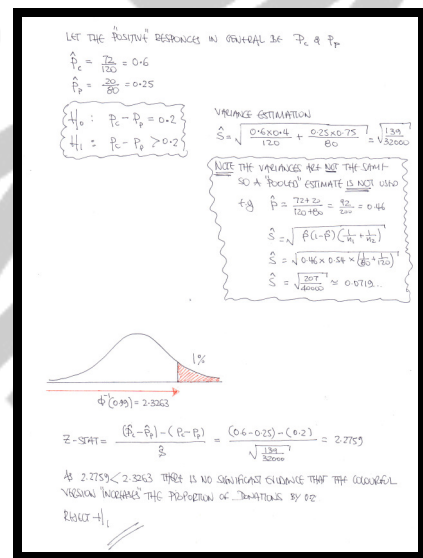 LET THE "POSITIVE" RESPONCES IN GENERAL BE Pc & Pp
P̂c = 72/120 = 0.6
P̂p = 20/80 = 0.25
H₀ : Pc - Pp = 0.2
H₁ : Pc - Pp > 0.2
VARIANCE ESTIMATION
Ŝ = √(0.6×0.4/120 + 0.25×0.75/80) = √(139/32000)
NOTE THE VARIANCES ARE NOT THE SAME
SO A "POOLED" ESTIMATE IS NOT USED
E.g P̂ = 72+20/120+80 = 92/200 = 0.46
Ŝ = √(P̂(1-P̂)(1/n₁ + 1/n₂))
Ŝ = √(0.46 × 0.54 × (1/80 + 1/120))
Ŝ = √(207/40000) ≈ 0.0719...
1%
Φ⁻¹(0.99) = 2.3263
Z-STAT = (P̂c - P̂p) - (Pc - Pp)/Ŝ = (0.6-0.25) - (0.2)/√(139/32000) = 2.2759
AS 2.2759 < 2.3263 THERE IS NO SIGNIFICANT EVIDENCE THAT THE COLOURFUL
VERSION "INCREASES" THE PROPORTION OF DONATIONS BY 0.2
REJECT H₁